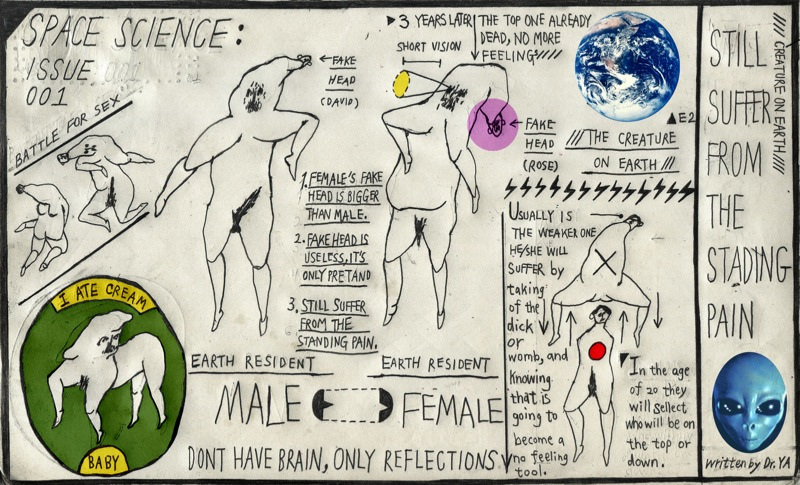 SPACE SCIENCE:
ISSUE
001
BATTLE FOR SEX
I ATE CREAM
BABY
← FAKE
HEAD
(DAVID)
1. FEMALE'S FAKE
HEAD IS BIGGER
THAN MALE.
2. FAKE HEAD IS
USELESS, IT'S
ONLY PRETAND
3. STILL SUFFER
FROM THE
STANDING PAIN.
EARTH RESIDENT
EARTH RESIDENT
MALE
FEMALE
DONT HAVE BRAIN, ONLY REFLECTIONS
▶3 YEARS LATER
SHORT VISION
THE TOP ONE ALREADY
DEAD, NO MORE
FEELING
← FAKE
HEAD
(ROSE)
▲E2
///THE CREATURE
ON EARTH ///
USUALLY IS
THE WEAKER ONE
HE/SHE WILL
SUFFER by
taking
of the
dick
or
womb, and
Knowing
that is
going to
become a
no feeling
tool.
In the age
of 20 they
will sellect
who will be on
the top or
down.
STILL
SUFFER
FROM
THE
STADING
PAIN
//// CREATURE ON EARTH ////
written by Dr. YA